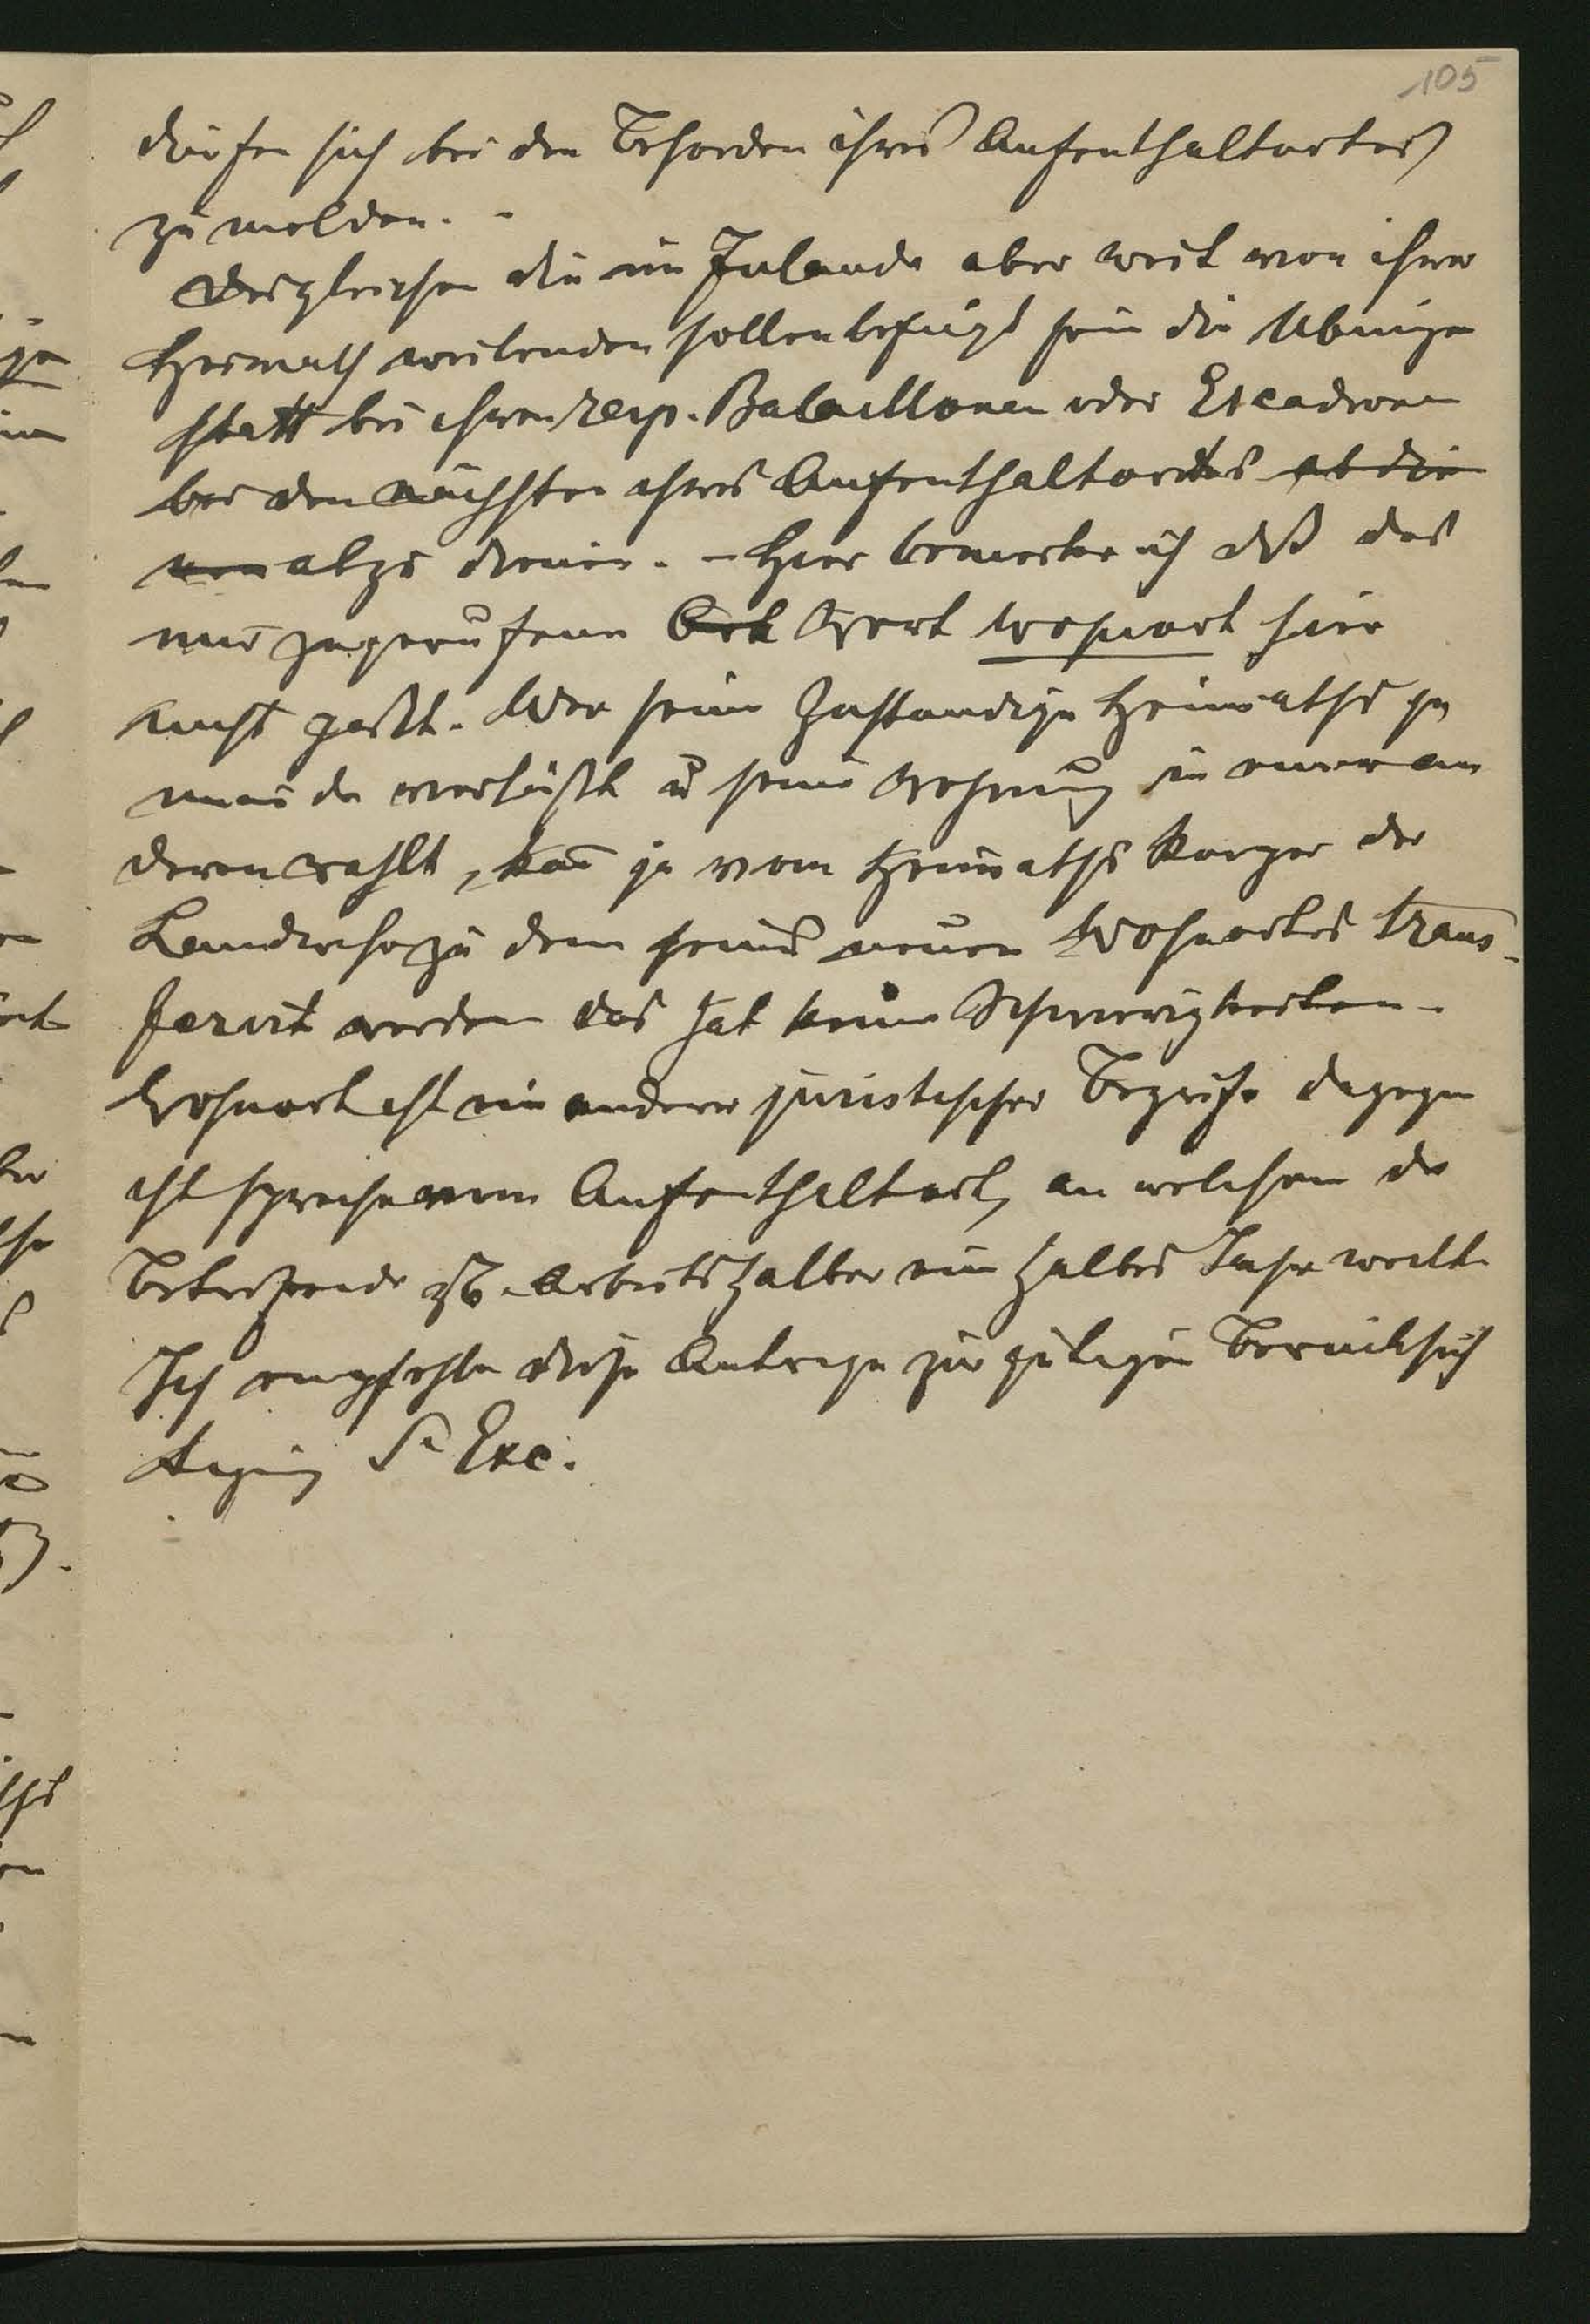 105
dürfen sich bei den Behorden ihres Aufenthaltortes
zu melden. -
Desgleichen die im Inlande aber weit von ihrer
Heimath weilenden sollen befugt sein die Übungen
statt bei ihren resp. Bataillonen oder Escadronen
bei den nächsten ihres Aufenthaltortes abdie
nen abzu dienen. - Hier bemerke ich daß das
mir zugerufene Ort Wort Wohnort hier
nicht paßt. Wer seine Zustandige Heimaths ge
meinde verläßt u seine Wohnung in einer an
deren wahlt, kan ja vom Heimaths Korper der
Landwehr zu dem seines neuen Wohnortes trans-
ferirt werden das hat keine Schwierigkeiten -
Wohnort ist ein anderer juristischer Begriff dagegen
ich spreche vom Aufenthaltort, an welchem der
Betreffende zB. Arbeitshalber ein halbes Jahr weilt.
Ich empfehle diese Antrage zur gütigen Berücksich
tigung Sr Exc.